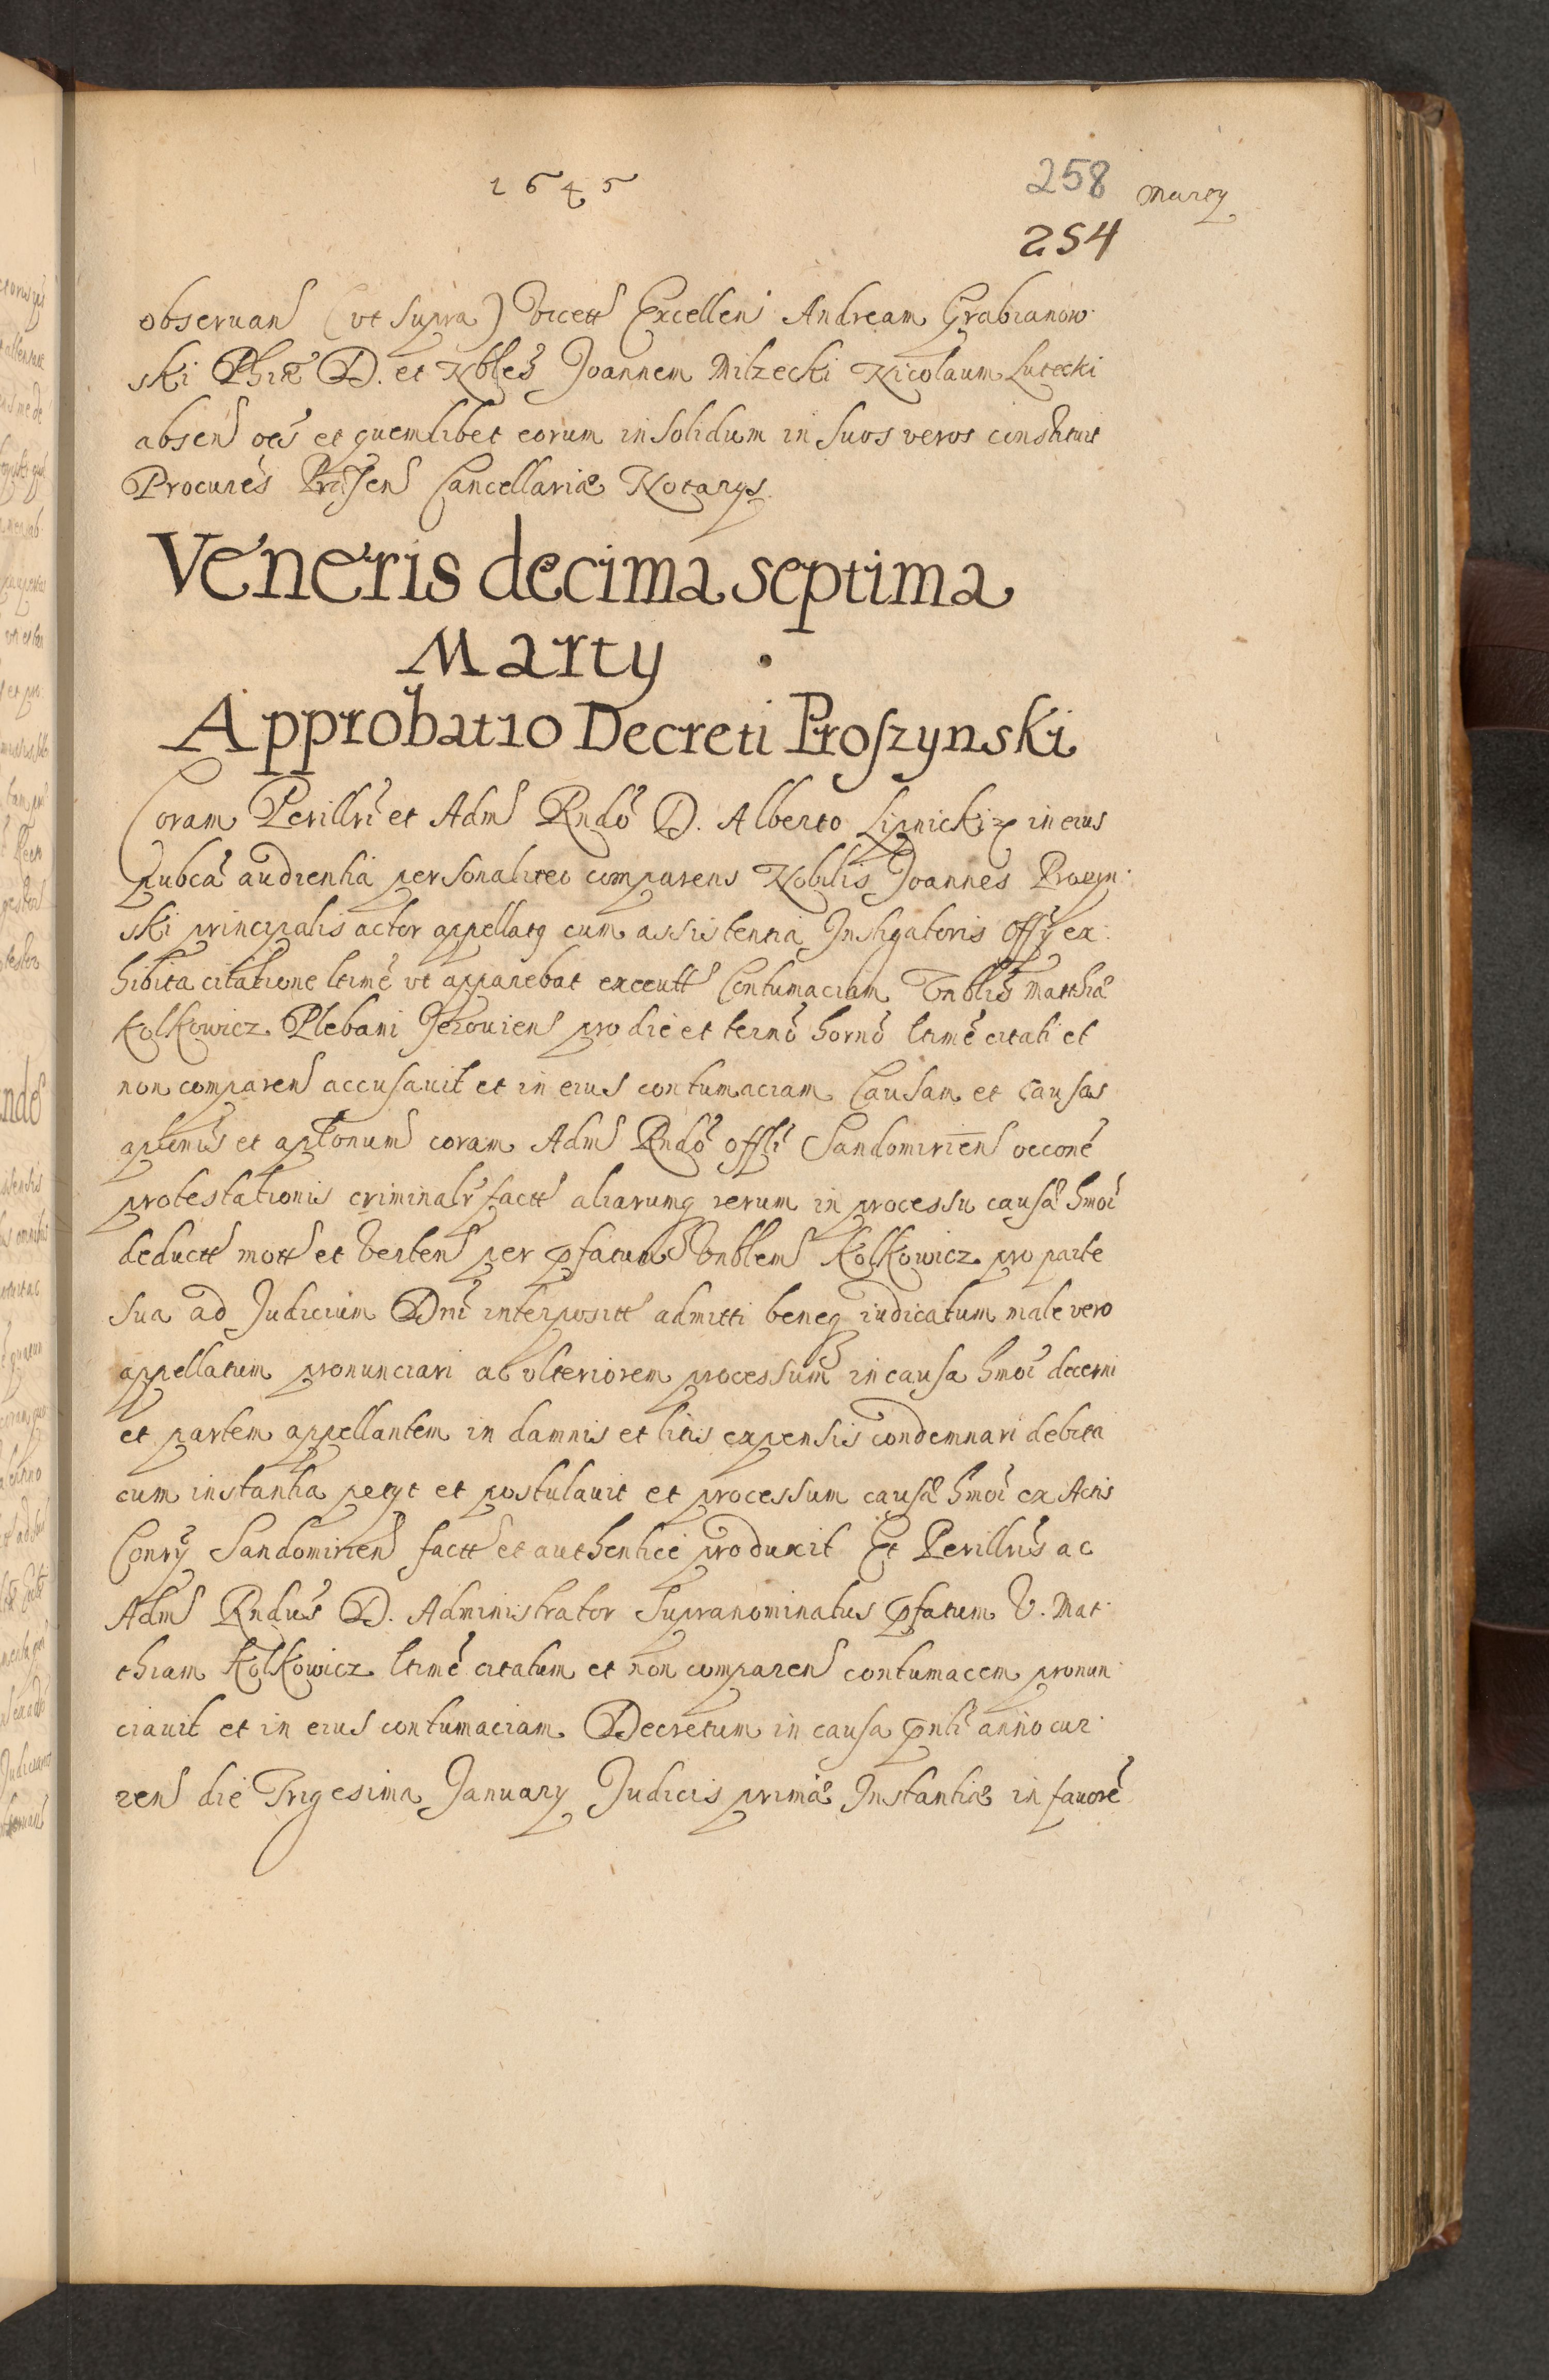 1645
258 Marty
254
obseruans (ut supra) Vicett Excellen Andream Grabianow
ski Phiæ D. et Nbles Joannem Milzecki Nicolaum Lutecki
absen oes et quemlibet eorum in solidum in suos veros constituit
Procures Præsen Cancellariæ Notarys
Veneris decima septima
Marty
Approbatio Decreti Proszynski
Coram Perillri et Adm Rndo D. Alberto Lipnicki in eius
pubca audientia personaliter comparens Nobilis Joannes Proszyn
ski principalis actor appellatq cum assistentia Instigatoris Offy ex
hibita citatione ltime ut apparebat executt Contumaciam Vnblis Matthiæ
Kolkowicz Plebani Jezouien pro die et termo horno ltime citati et
non comparen accusauit et in eius contumaciam Causam et causas
aplonis et aplonum coram Adm Rndo Offli Sandomirien occone
protestationis criminalr factt aliarumq rerum in processu causæ hmoi
deductt mott et verten per pfatum Vnblem Kolkowicz pro parte
sua ad Judicium Dni interpositt admitti beneq iudicatum male vero
appellatum pronunciari ac ulteriorem processum in causa hmoi decerni
et partem appellantem in damnis et litis expensis condemnari debita
cum instantia petyt et postulauit et processum causæ hmoi ex Actis
Conry Sandomirien factt et authentice produxit Et Perillris ac
Adm Rndus D. Administrator supranominatus pfatum V. Mat
thiam Kolkowicz ltime citatum et non comparen contumacem pronun
ciauit et in eius contumaciam Decretum in causa pnti anno cur
ren die Trigesima January Judicis primæ Instantiæ in fauore